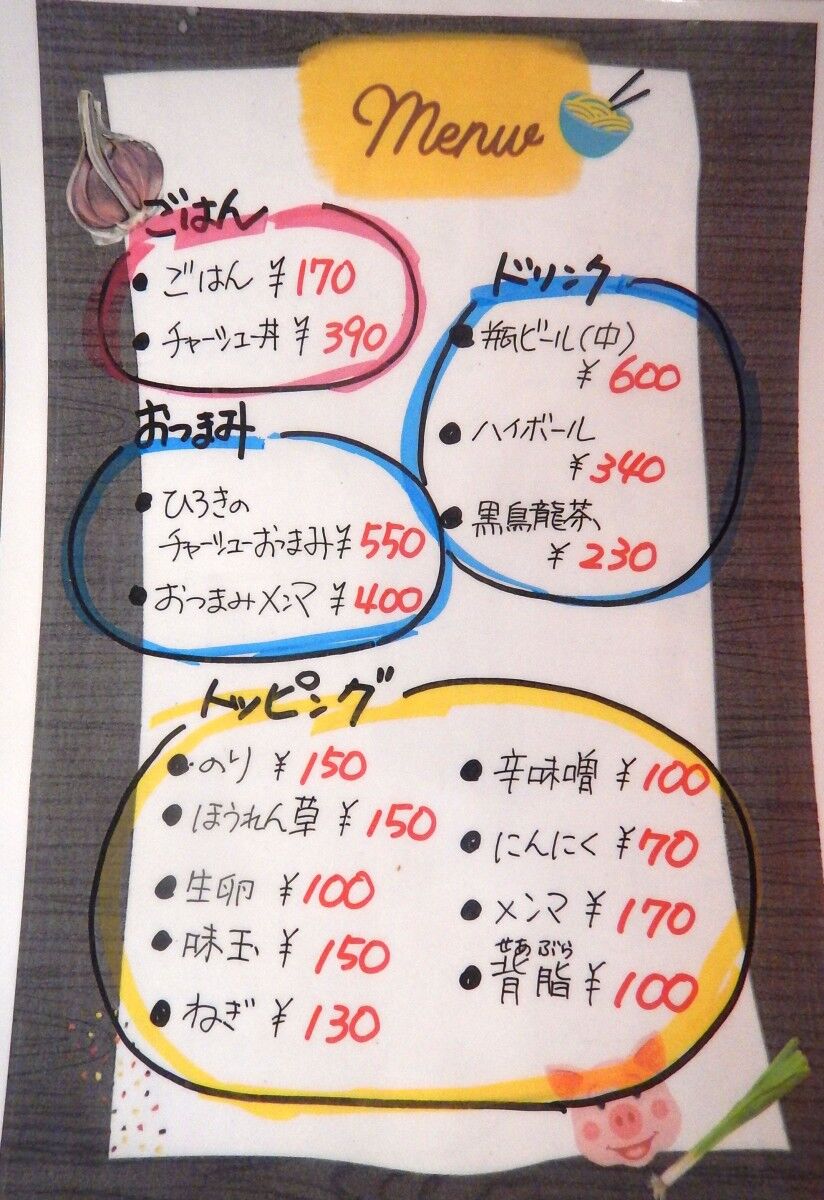 Menu
ごはん
・ごはん ¥170
・チャーシュー丼 ¥390
ドリンク
・瓶ビール(中)
¥600
・ハイボール
¥340
・黒烏龍茶
¥230
おつまみ
・ひろきの
チャーシューおつまみ¥550
・おつまみメンマ ¥400
トッピング
・のり ¥150
・ほうれん草 ¥150
・生卵 ¥100
・味玉 ¥150
・ねぎ ¥130
・辛味噌 ¥100
・にんにく ¥70
・メンマ ¥170
せあぶら
・背脂 ¥100